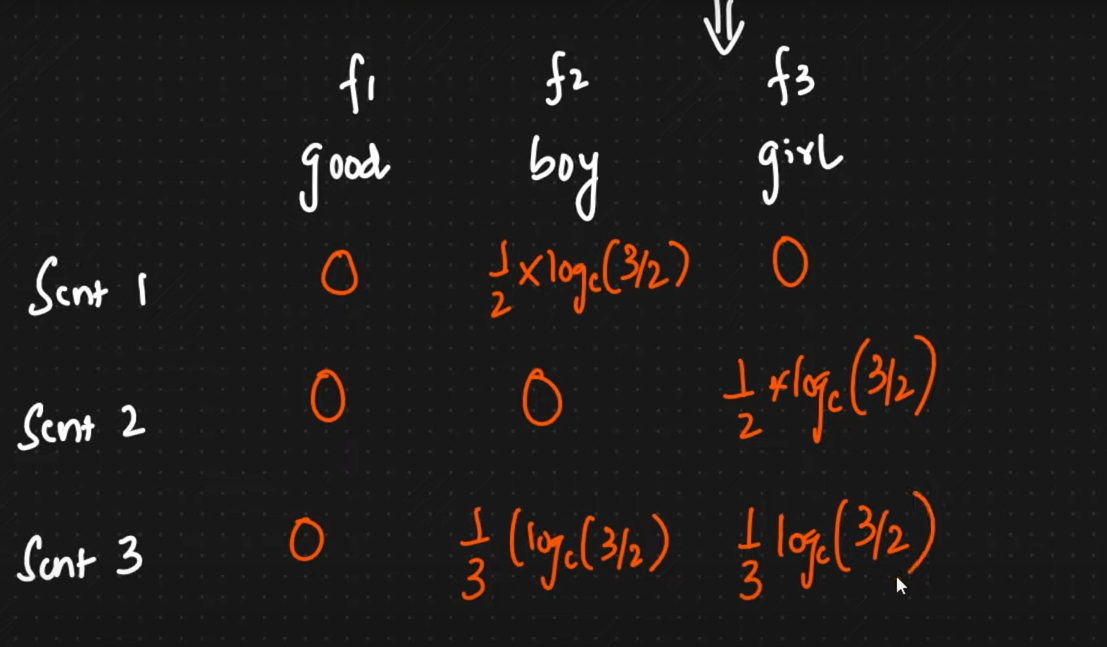 f1 f2 f3
good boy girl
Sent 1 0 1/2 × loge(3/2) 0
Sent 2 0 0 1/2 * loge(3/2)
Sent 3 0 1/3 (loge(3/2) 1/3 loge(3/2)